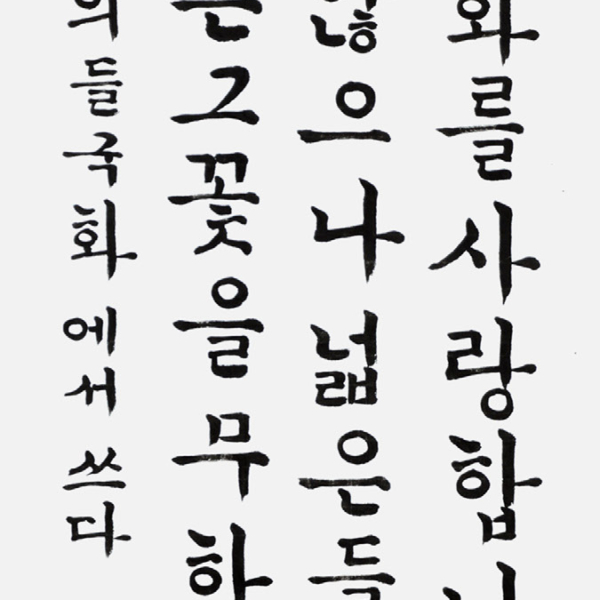 화를 사랑합니
않으나 넓은 들
는 그 꽃을 무하
의 들국화에서 쓰다